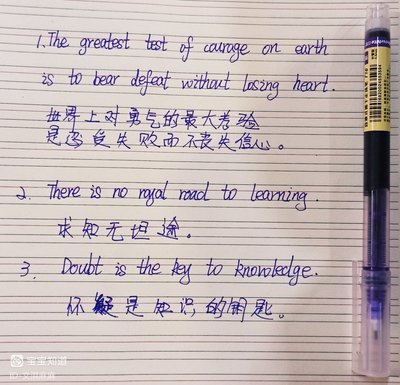 1. The greatest test of courage on earth
is to bear defeat without losing heart.
世界上对勇气的最大考验
是忍受失败而不丧失信心。
2. There is no royal road to learning.
求知无坦途。
3. Doubt is the key to knowledge.
怀疑是知识的钥匙。
宝宝知道